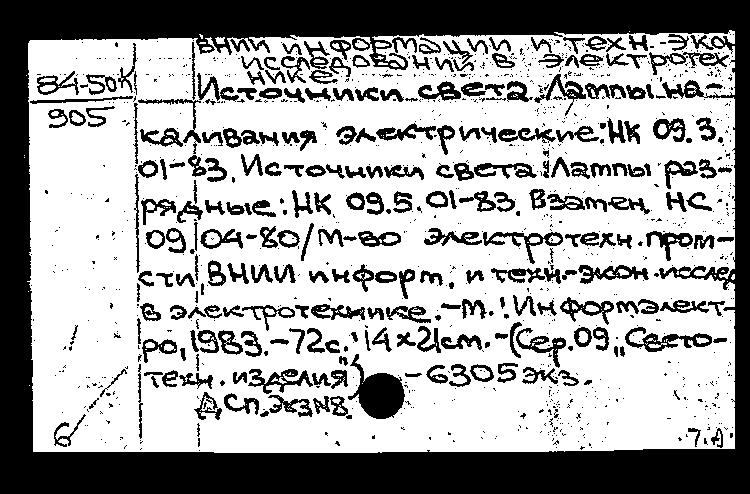 ВНИИ информации и техн.-экон
исследований в электротех
нике
84-50К
905
Источники света. Лампы на-
каливания электрические: НК 09.3.
01-83. Источники света. Лампы раз-
рядные: НК 09.5.01-83. Взамен НС
09.04-80/М-во электротехн. пром-
сти, ВНИИ информ. и техн.-экон. исслед
в электротехнике. -М.: Информэлект-
ро, 1983. -72с.; 14х21см. -(Сер.09 „Свето-
техн. изделия") -6305 экз.
ДСП. Экз№8.
6
7.А